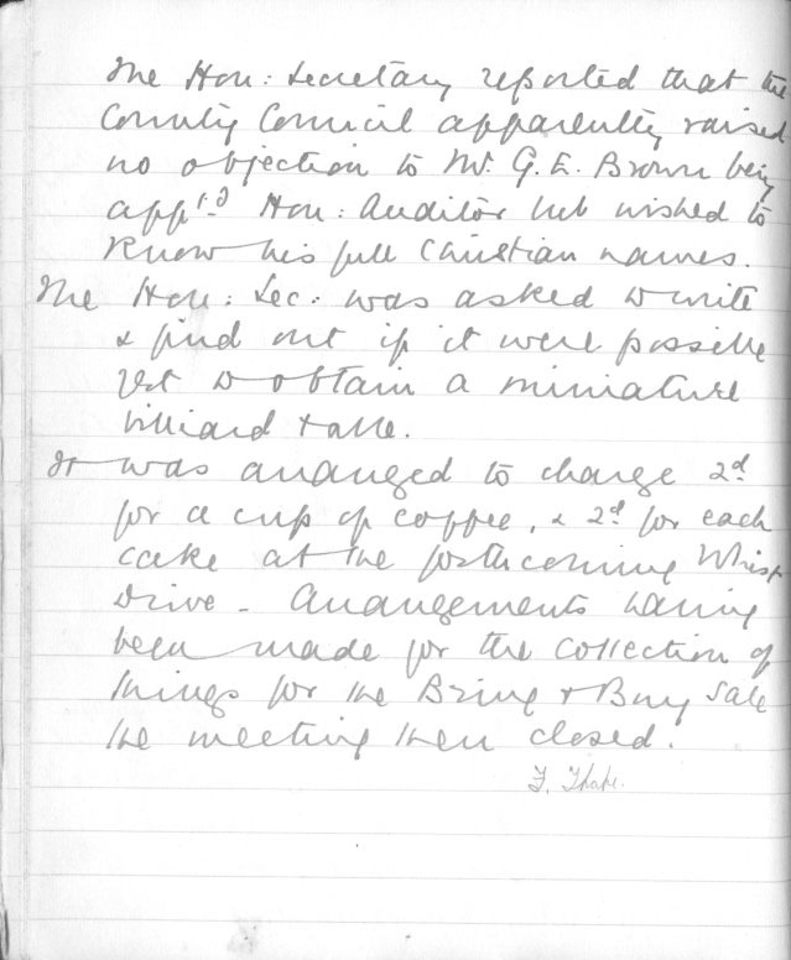 The Hon: Secretary reported that the
County Council apparently raised
no objection to Mr. G. E. Brown being
app'd Hon: Auditor but wished to
know his full Christian names.
The Hon: Sec: was asked to write
& find out if it were possible
yet to obtain a miniature
billiard table.
It was arranged to charge 2d
for a cup of coffee, & 2d for each
cake at the forthcoming Whist
Drive - Arrangements having
been made for the collection of
things for the Bring & Buy Sale
the meeting then closed.
F. Thake.